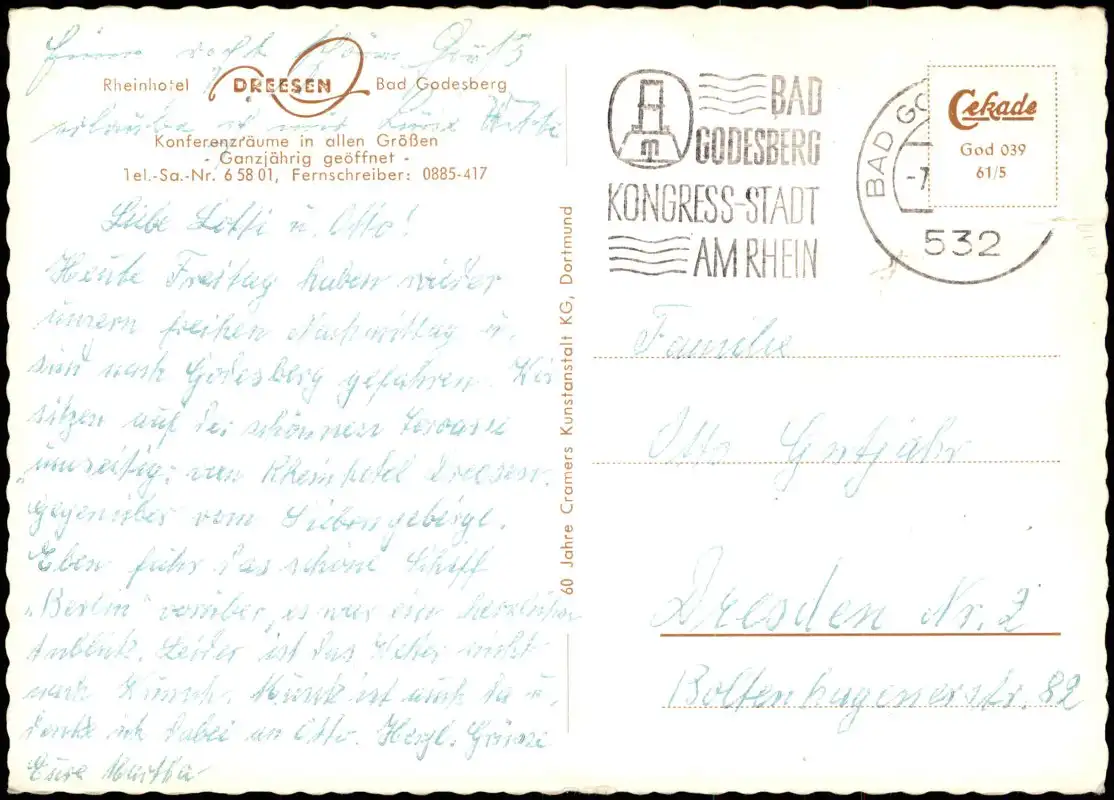 Rheinhotel DREESEN Bad Godesberg
Konferenzräume in allen Größen
- Ganzjährig geöffnet -
Tel.-Sa.-Nr. 6 58 01, Fernschreiber: 0885-417
Liebe Lotti u. Otto!
Heute Freitag haben wieder
unsern freihen Nachmittag u.
sind nach Godesberg gefahren. Wir
sitzen auf der schönnen Terrasse
vom Rheinhotel Dreesen
gegenüber vom Siebengebirge.
Eben fuhr das schöne Schiff
„Berlin" vorüber, es war ein herrlicher
Anblick. Leider ist das Wetter nicht
nach Wunsch. Musik ist auch da u.
denke ich dabei an Otto. Herzl. Grüsse
Eure Martha
60 Jahre Cramers Kunstanstalt KG, Dortmund
BAD
GODESBERG
KONGRESS-STADT
AM RHEIN
BAD GO
-7
532
Cekade
God 039
61/5
Familie
Otto Gutjahr
Dresden Nr. 2
Boltenhagenerstr. 82